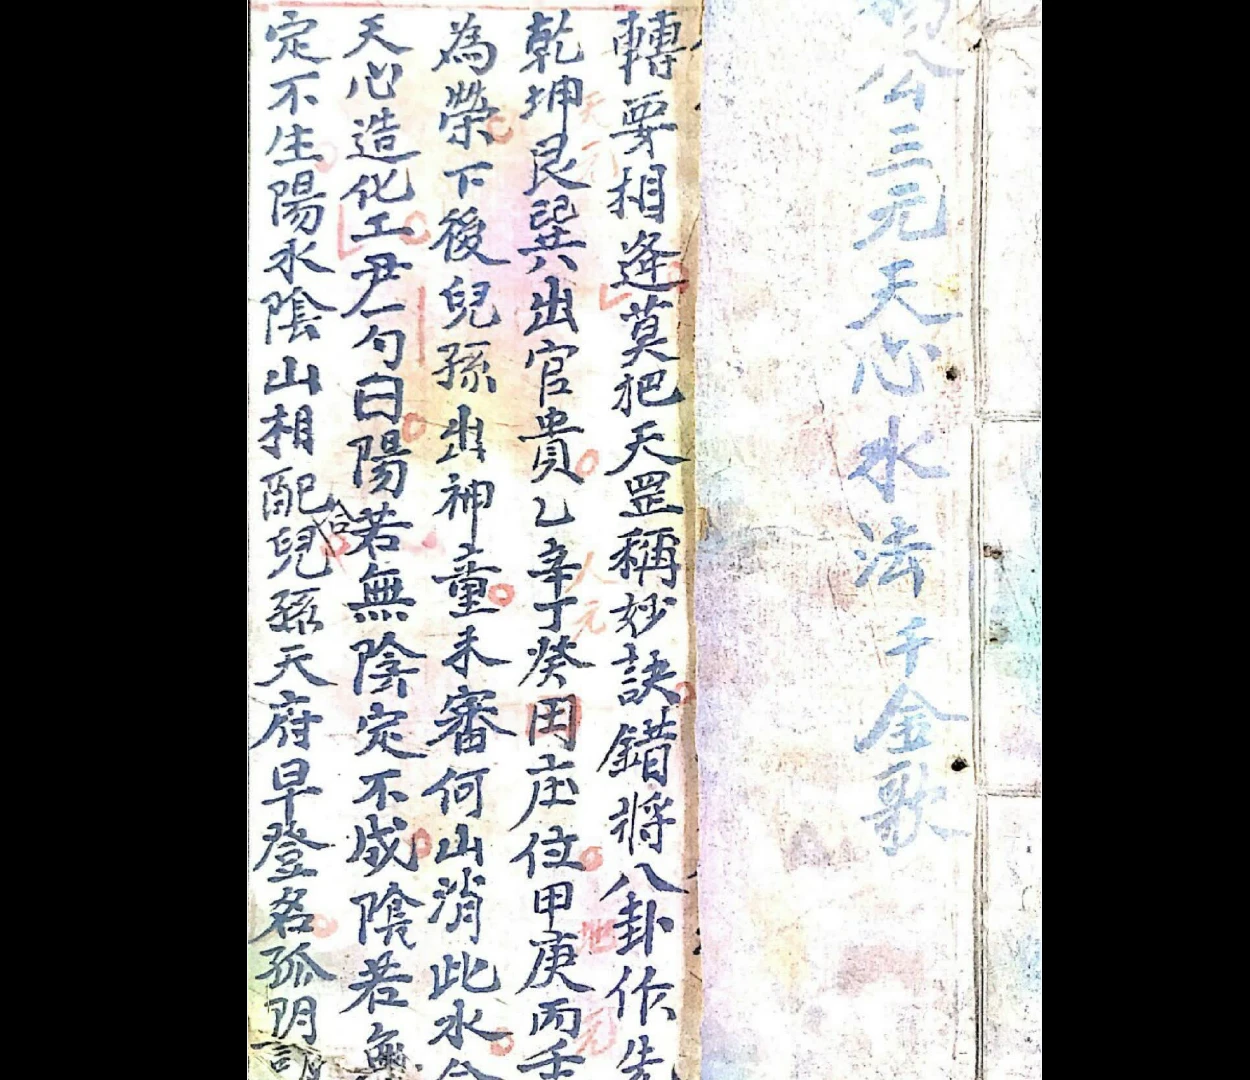 公三元天心水法千金歌
轉要相逢莫把天罡稱妙訣錯將八卦作先
乾坤艮巽出官貴乙辛丁癸田庄位甲庚丙壬
為榮下後兒孫出神童未審何山消此水合
天心造化工尹一勺曰陽若無陰定不成陰若無
定不生陽水陰山相配兒孫天府早登名孤阴
天元
人元
地元
合